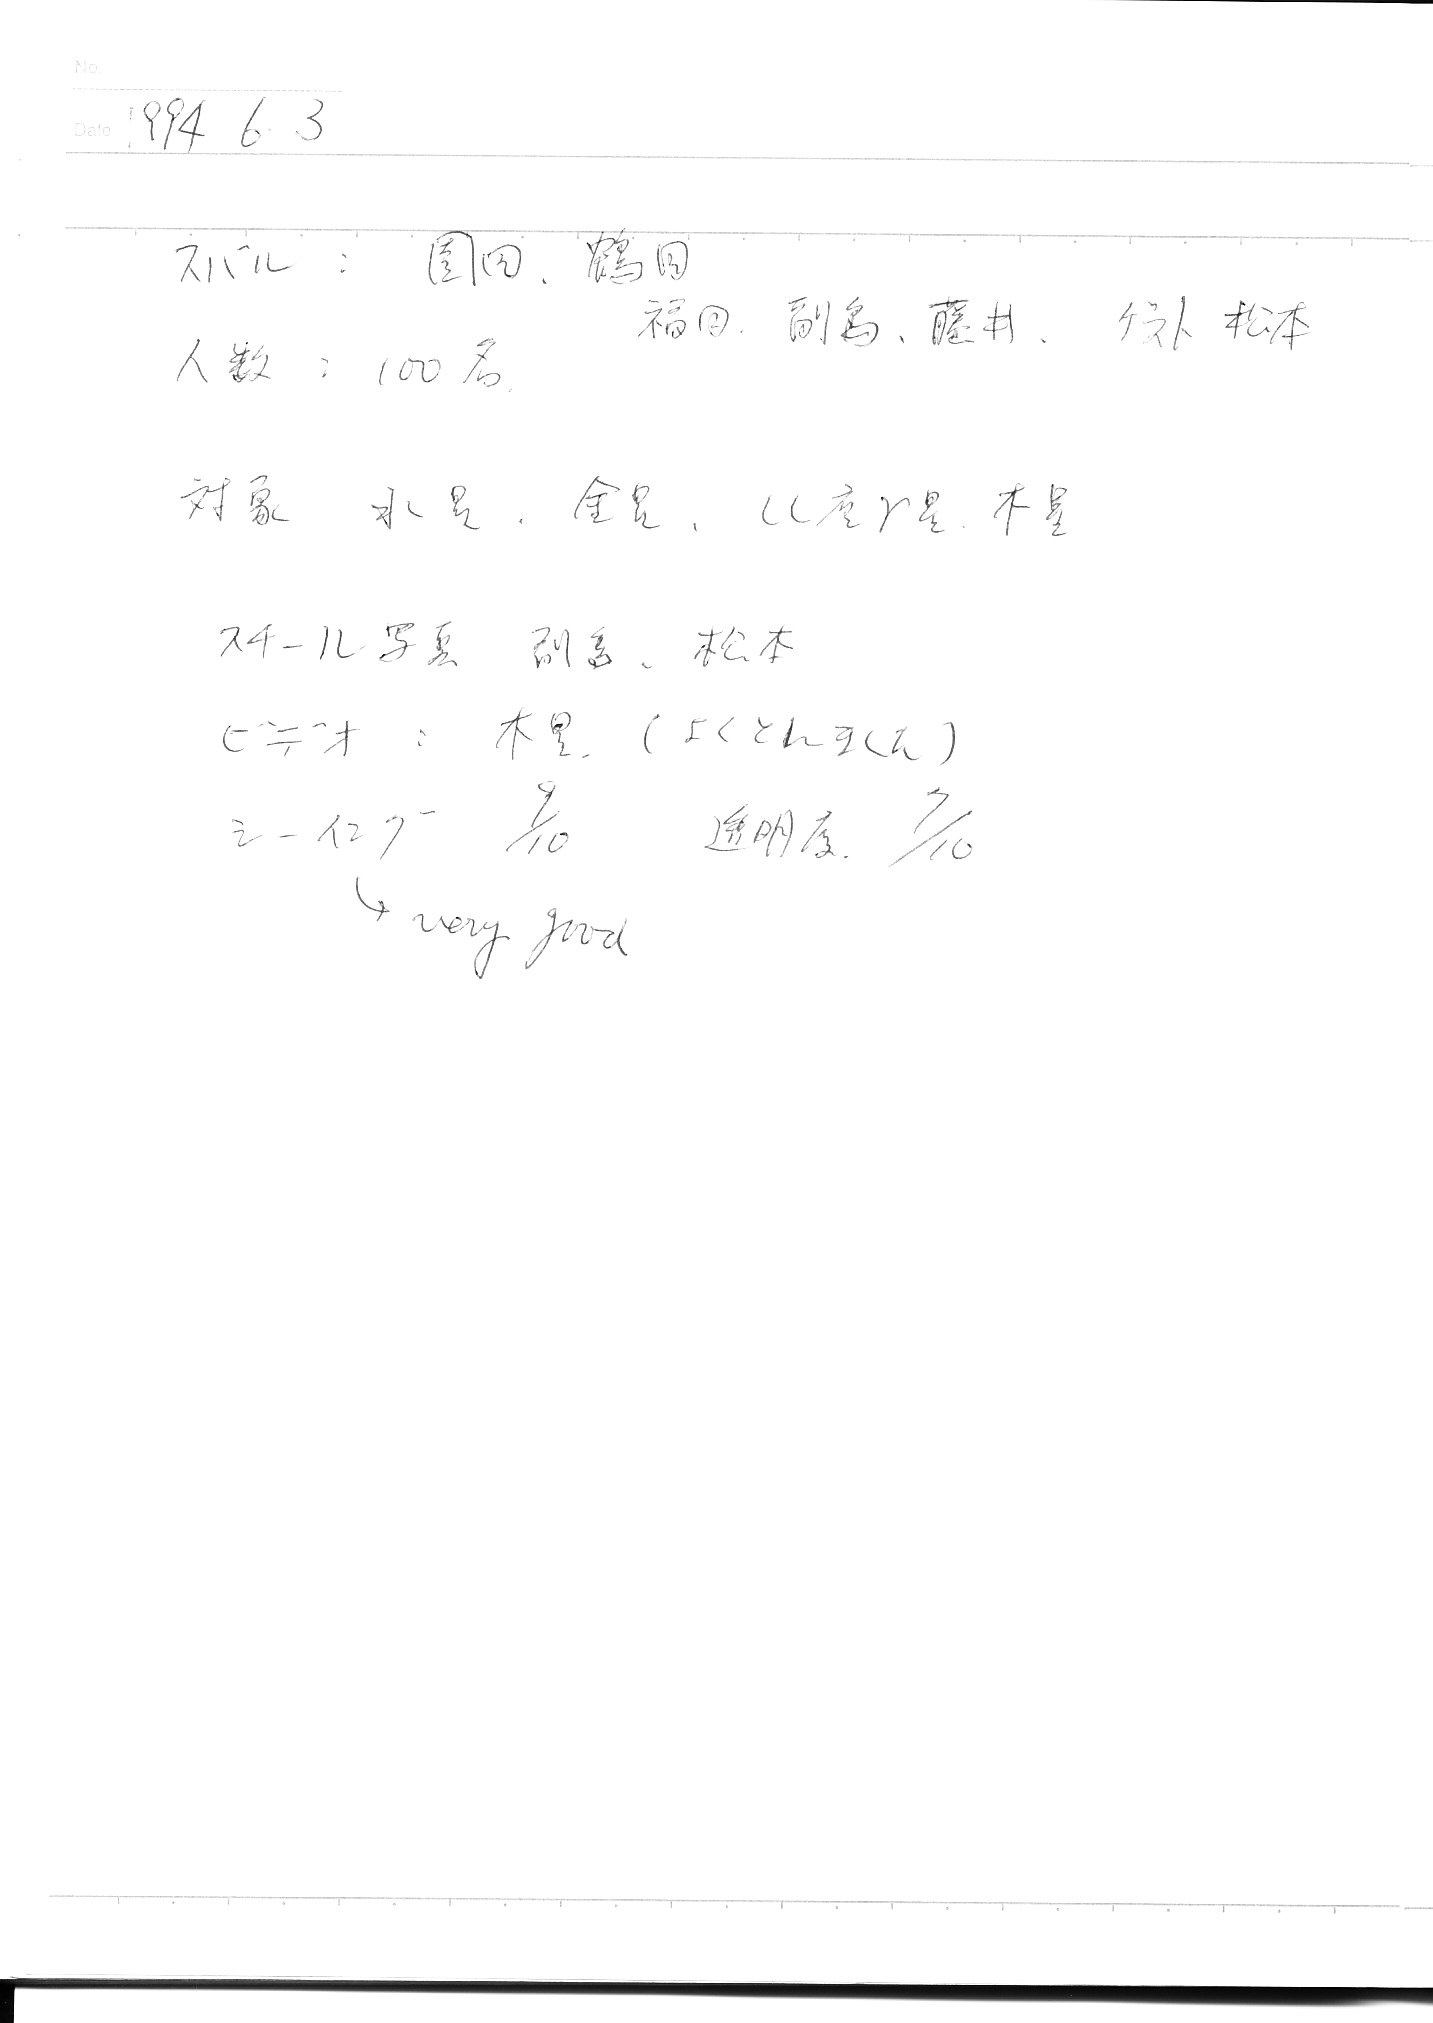 No.
Date 1994 6.3
スバル : 園田、鶴田
福田、副島、藤井、ゲスト 松本
人数 : 100名
対象 水星、金星、しし座γ星、木星
スチール写真 副島、松本
ビデオ : 木星、(よくとれました)
シーイング 9/10 透明度 7/10
↳ very good